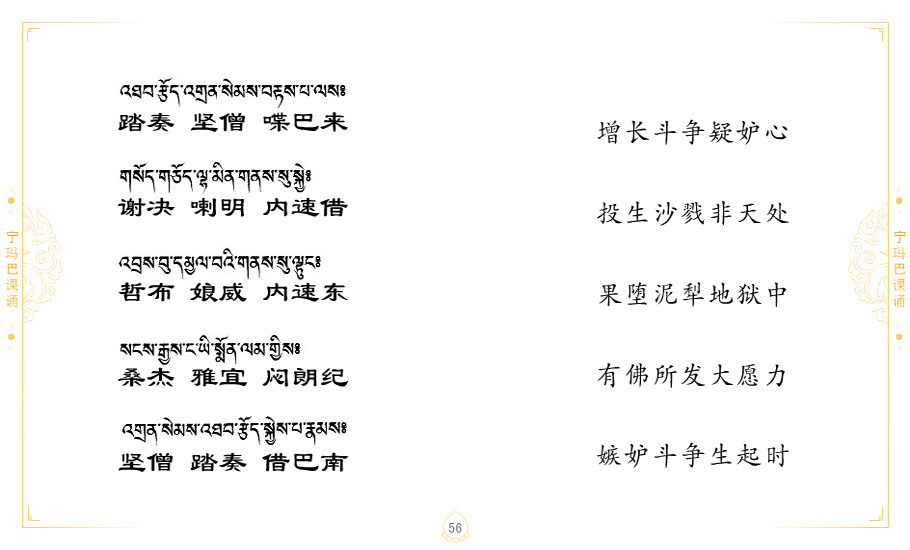 འཐབ་རྩོད་འགྲན་སེམས་བརྟས་པ་ལས༔
踏奏 坚僧 喋巴来
གསོད་གཅོད་ལྷ་མིན་གནས་སུ་སྐྱེ༔
谢决 喇明 内速借
འབྲས་བུ་དམྱལ་བའི་གནས་སུ་ལྟུང༔
哲布 娘威 内速东
སངས་རྒྱས་ང་ཡི་སྨོན་ལམ་གྱིས༔
桑杰 雅宜 闷朗纪
འགྲན་སེམས་འཐབ་རྩོད་སྐྱེས་པ་རྣམས༔
坚僧 踏奏 借巴南
增长斗争疑妒心
投生沙戮非天处
果堕泥犁地狱中
有佛所发大愿力
嫉妒斗争生起时
宁玛巴课诵
宁玛巴课诵
56